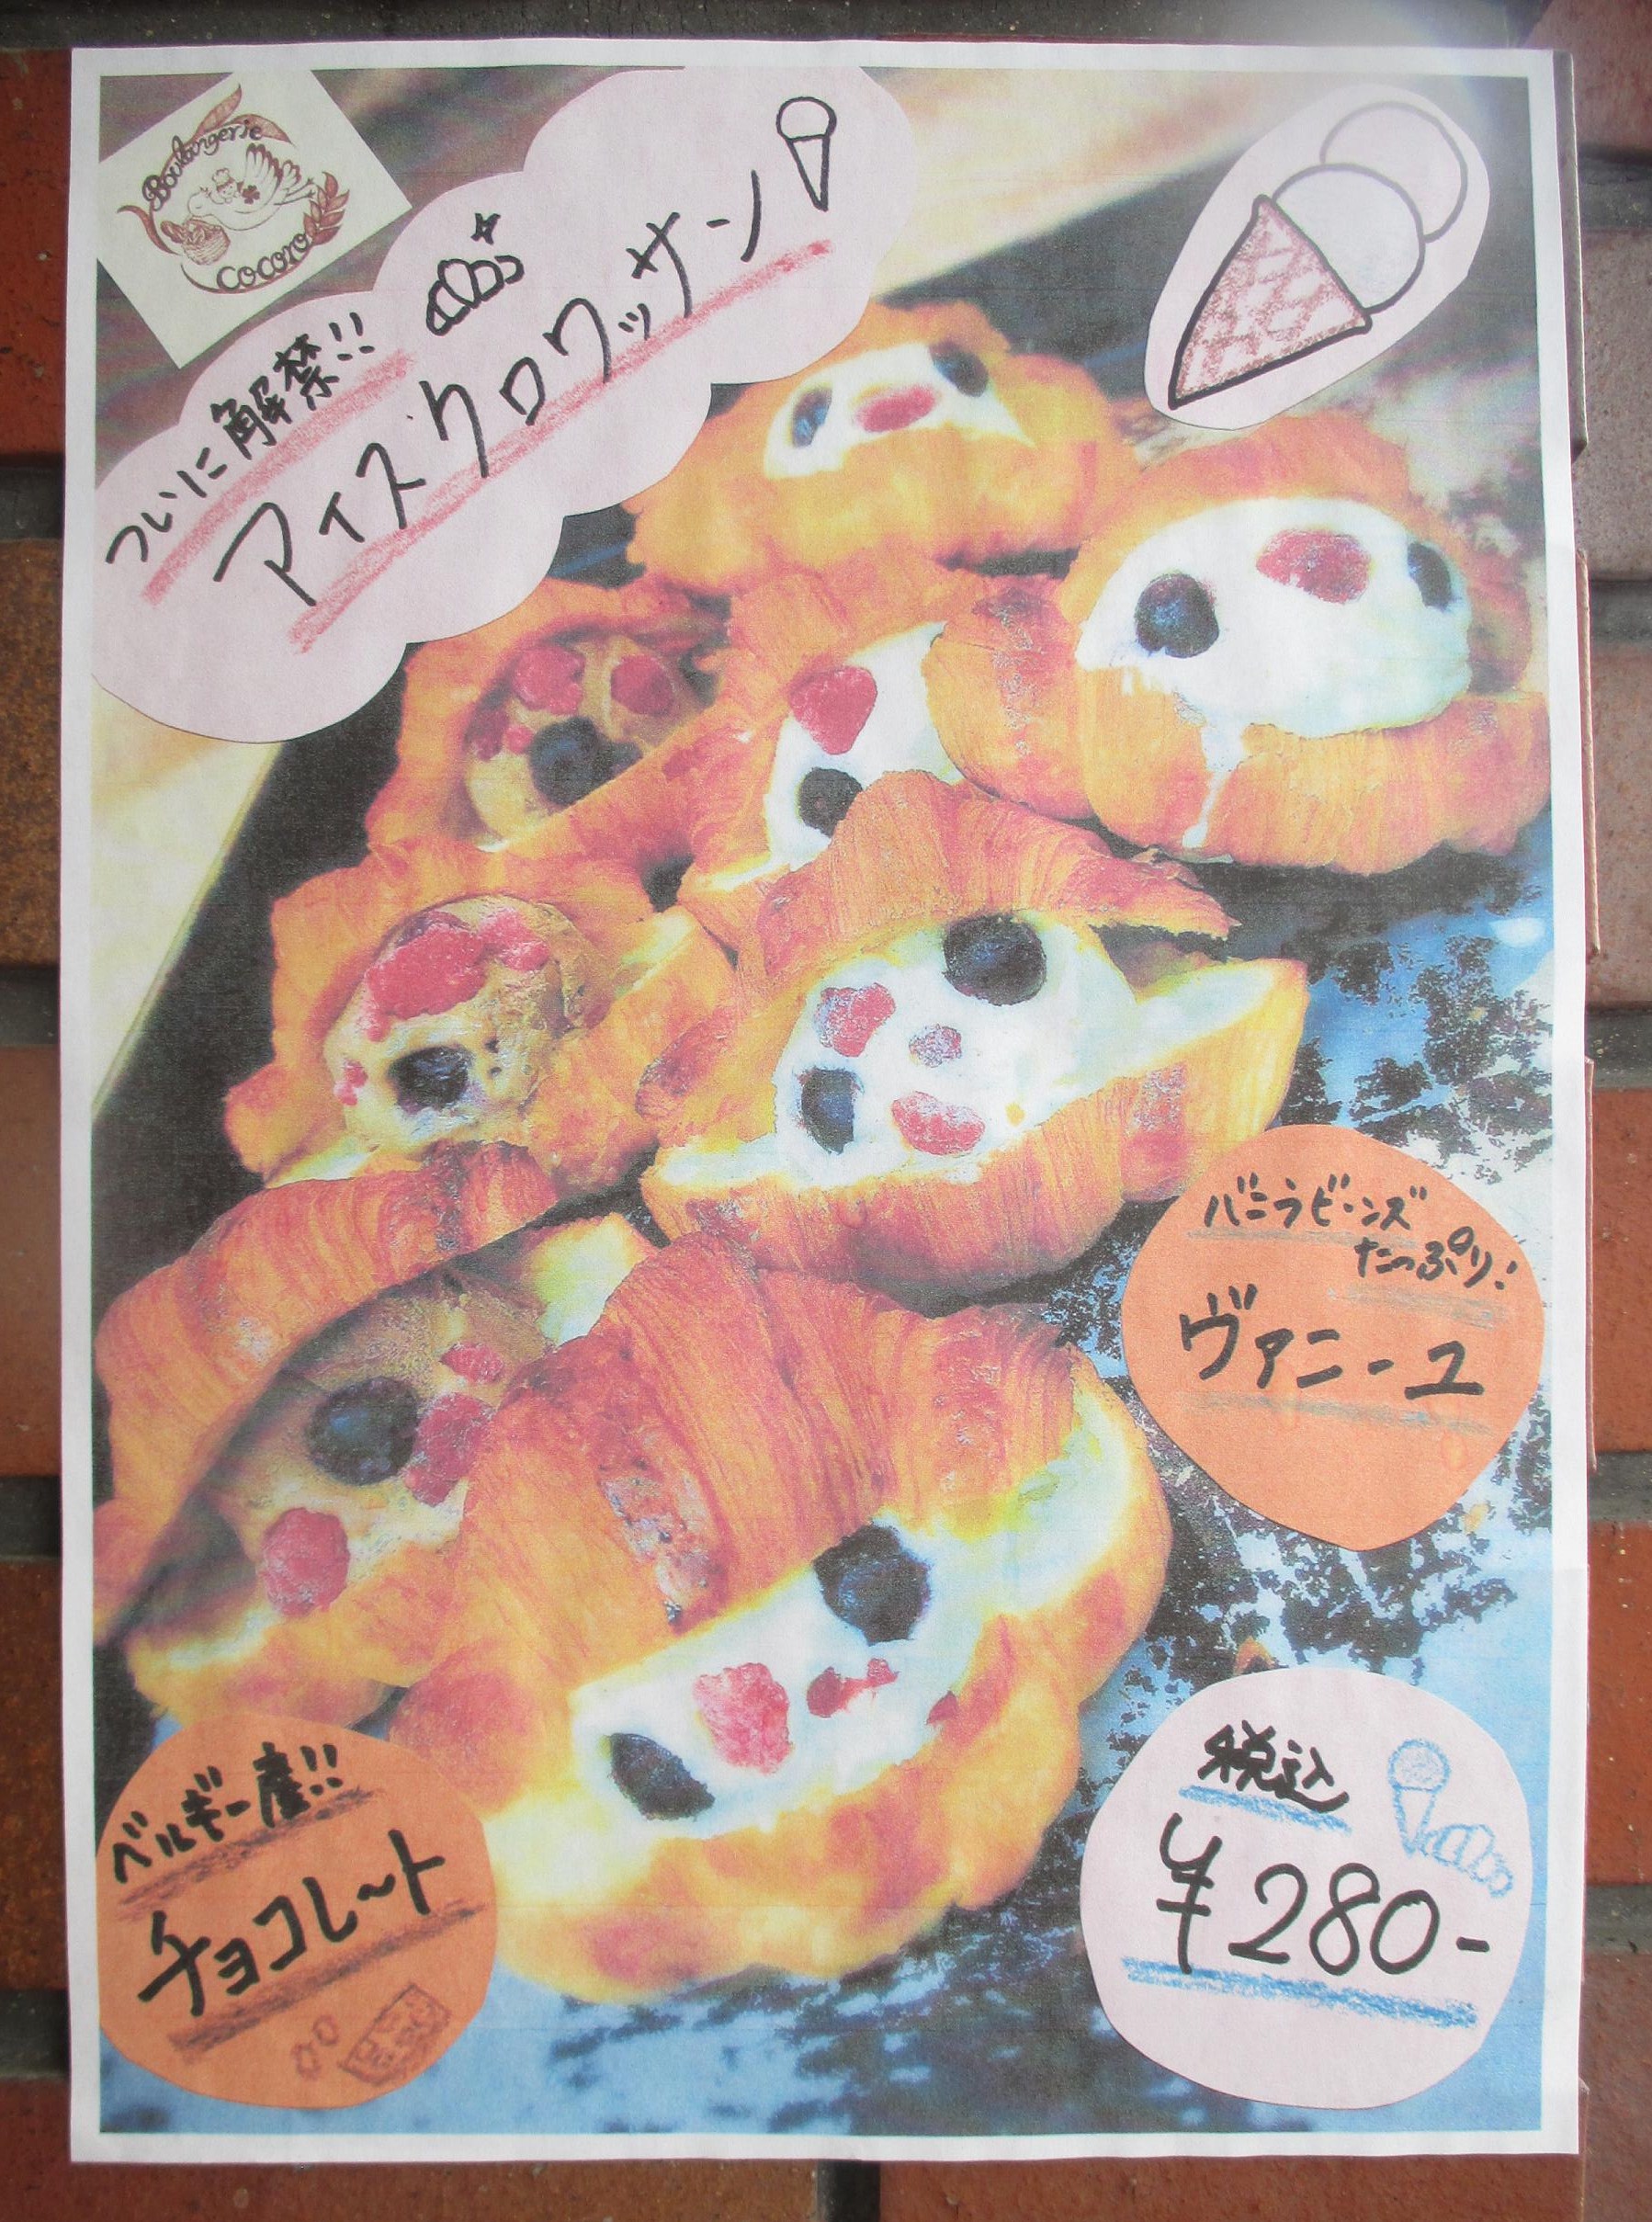 Boulangerie
cocoro
ついに解禁!!
アイスクロワッサン
バニラビーンズ
たっぷり!
ヴァニーユ
ベルギー産!!
チョコレート
税込
¥280-